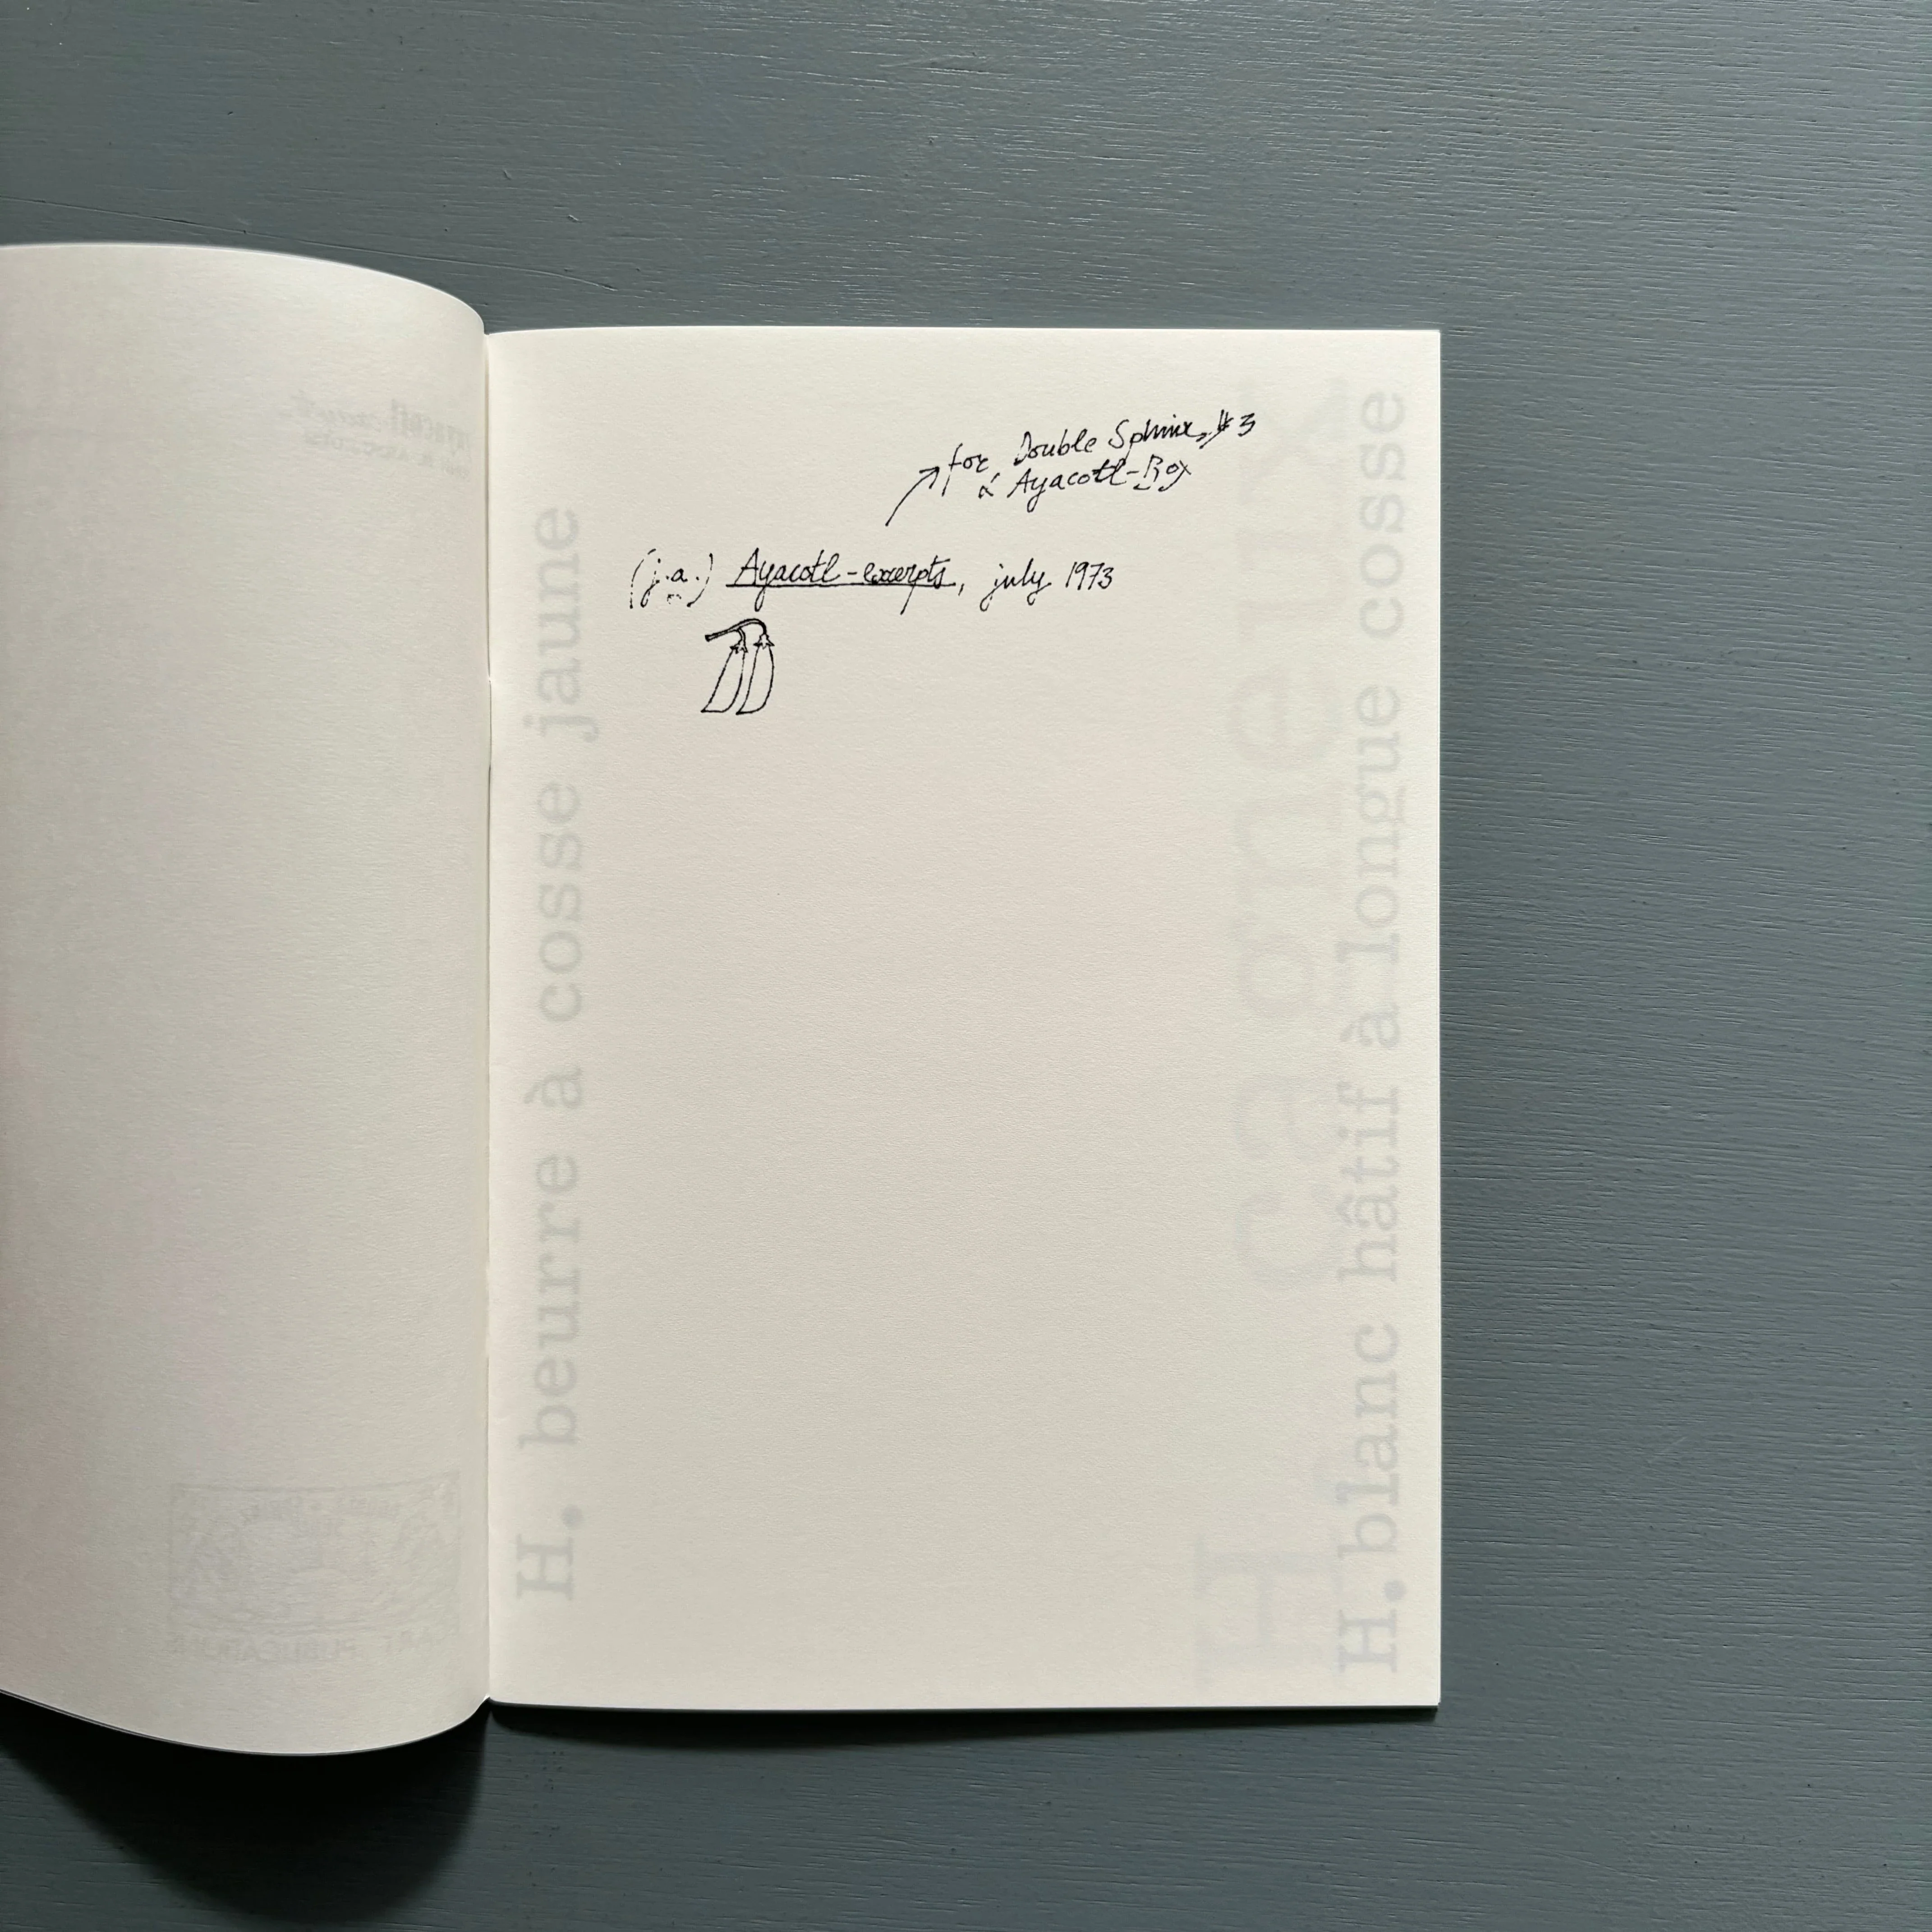 for Double Sphinx, #3
& Ayacotl-Box
(j.a.) Ayacotl-excerpts, july 1973
H. beurre à cosse jaune
H. blanc hâtif à longue cosse
PUBLICATIONS